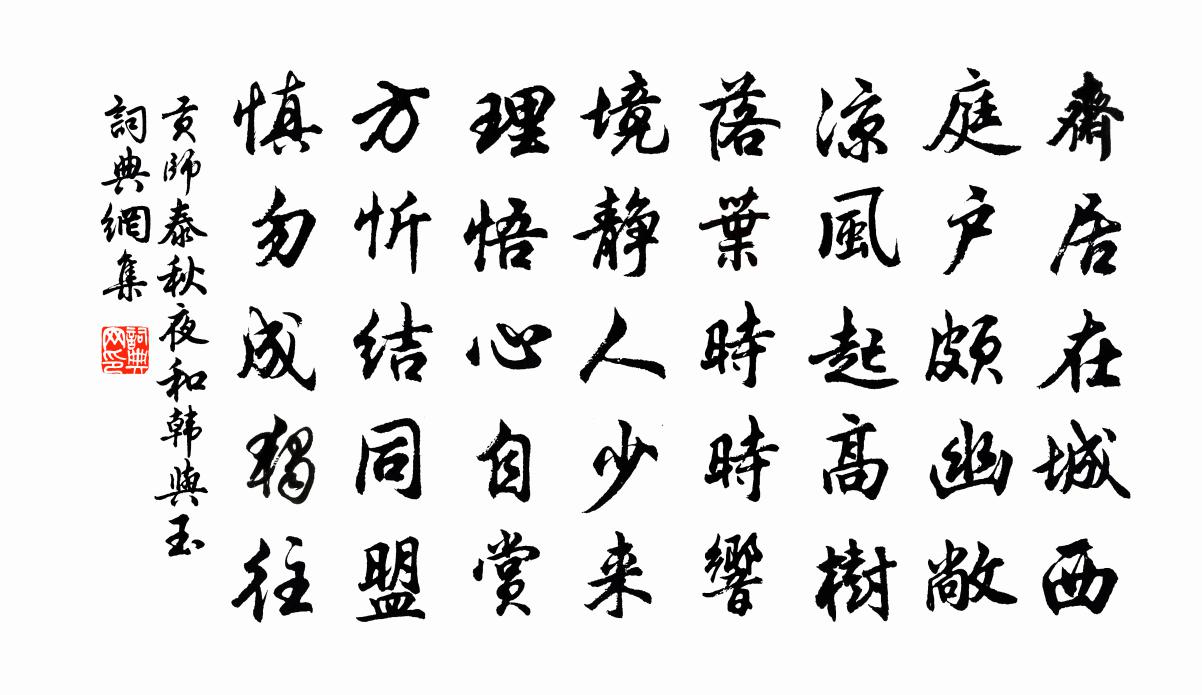 齋居在城西
庭户頗幽敞
涼風起高樹
落葉時時響
境静人少来
理悟心自賞
方忻结同盟
慎勿成獨往
贡师泰秋夜和韩與玉
詞典網集
詞典
网印